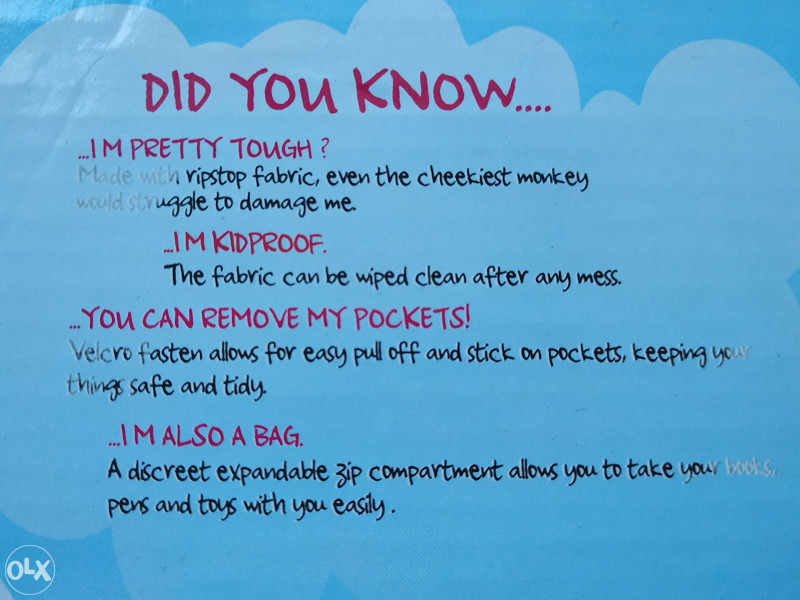 DID YOU KNOW....
...I M PRETTY TOUGH ?
Made with ripstop fabric, even the cheekiest monkey
would struggle to damage me.
...I M KIDPROOF.
The fabric can be wiped clean after any mess.
...YOU CAN REMOVE MY POCKETS!
Velcro fasten allows for easy pull off and stick on pockets, keeping your
things safe and tidy.
...I M ALSO A BAG.
A discreet expandable zip compartment allows you to take your books,
pens and toys with you easily .
OLX